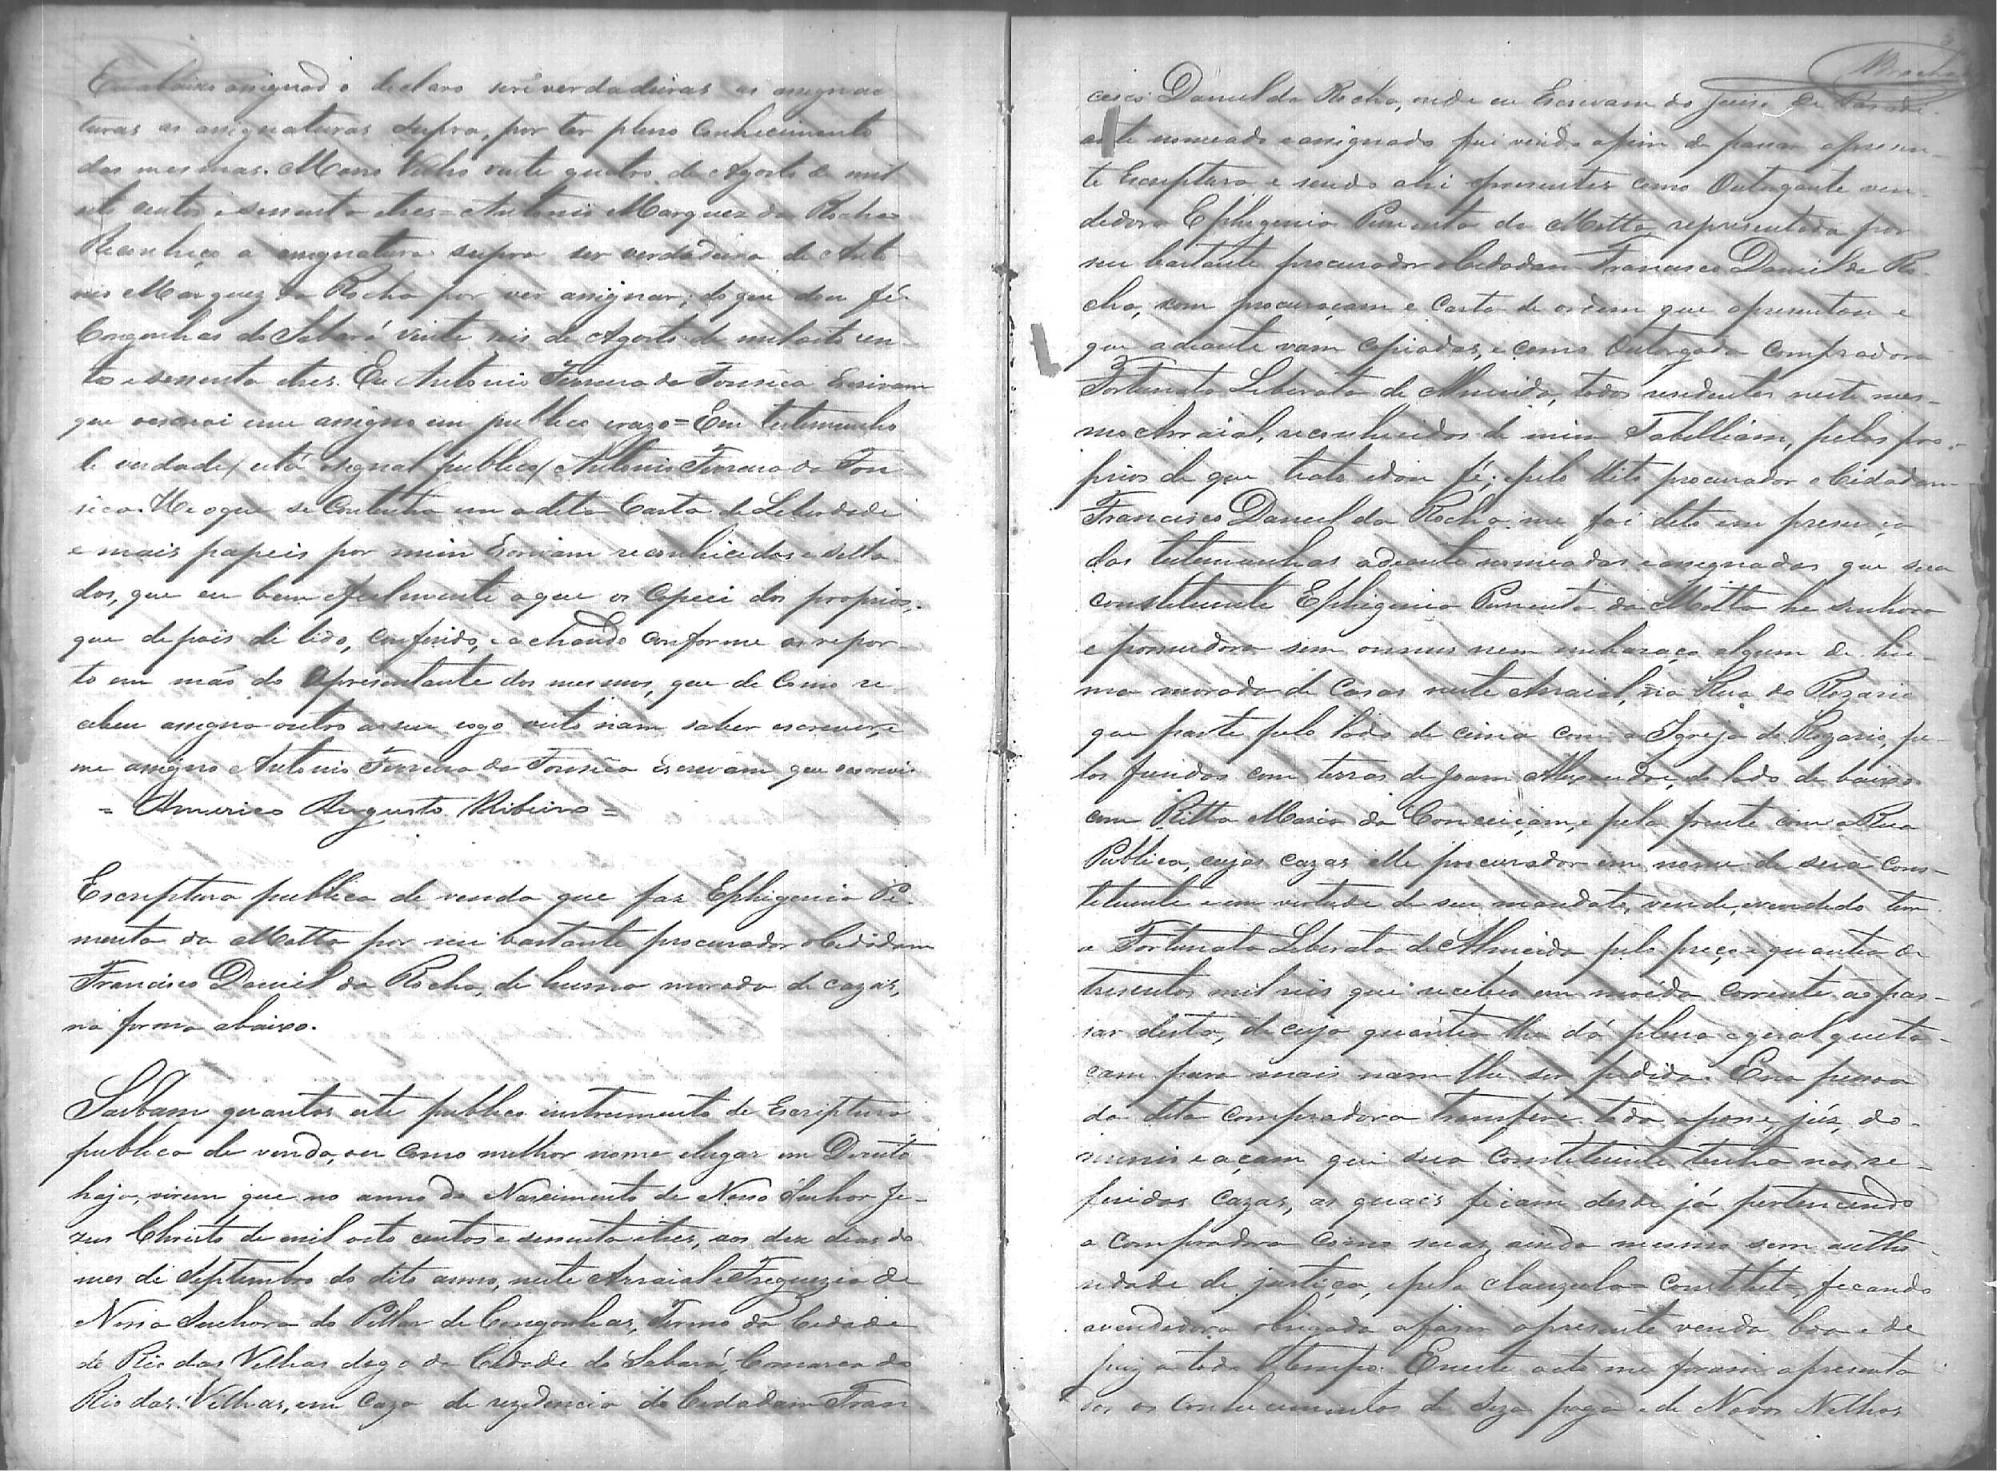 Eu abaixo assignado declaro serverdadeiras as assigna
turas as assignaturas supra, por ter pleno conhecimento
das mesmas. Morro Velho vinte quatro de Agosto de mil
oito centos esessenta etres = Antonio Marquez da Rocha
Reconheço a assignatura supra ser verdadeira de Anto
nio Marquez da Rocha por ver assignar; do que dou fé.
Congonhas do Sabará vinte seis de Agosto de miloito cen
tos esessenta etres. Eu Antonio Ferreira da Fonseca Escrivam
que escrevi eme assigno em publico erazo = Em testemunho
de verdade / está osignal publico / Antonio Ferreira da Fon
seca. He oque se Continha em adita Carta de Liberdade
e mais papeis por mim Escrivam reconhecidos esella
dos, que eu bem efielmente aque os Copiei dos proprios,
que depois de lido, conferido, eachando conforme os repor
to em mão do Apresentante dos mesmos, que de Como re
cebeu assigna outro aseu rogo visto nam saber escrever, e
me assigno Antonio Ferreira da Fonseca Escrivam que escrevi
= Americo Augusto Ribeiro =
Escriptura publica de venda que faz Ephigenia Pi
menta da Motta por seu bastante procurador oCidadam
Francisco Daniel da Rocha, de huma morada de cazas,
na forma abaixo.
Saibam quantos este publico instrumento de Escriptura
publica de venda, ou Como melhor nome elugar em Direito
haja, virem que no anno do Nascimento de Nosso Senhor Je
zus Christo de mil oito centos e sessenta etres, aos dez dias do
mes de Septembro do dito anno, neste Arraial eFreguezia de
Nossa Senhora do Pillar de Congonhas, Termo da Cidade
de Rio das Velhas digo da Cidade do Sabará, Comarca do
Rio das Velhas, em Caza de rezidencia do Cidadam Fran
Rocha
cisco Daniel da Rocha, onde eu Escrivam do Juizo de Paz adi
ante nomeado eassignado fui vindo afim de passar apresen
te Escriptura e sendo ahi presentes como Outorgante ven
dedora Ephigenia Pimenta da Motta, representada por
seu bastante procurador oCidadam Francisco Daniel da Ro
cha, com procuraçam e Carta de ordem que apresentou e
que adiante vam copiadas, e como Outorgada Compradora
Fortunata Liberata de Almeida, todos rezidentes neste mes
mo Arraial, reconhecidos de mim Tabelliam, pelos pro
prios de que trato edou fé; epelo dito procurador oCidadam
Francisco Daniel da Rocha me foi dito em presença
das testemunhas adiante nomeadas eassignadas que sua
constituente Ephigenia Pimenta da Motta he senhora
e possuidora sem onnus nem embaraço algum de hu
ma morada de Casas neste Arraial, na Rua do Rozario
que parte pelo lado de cima com a Igreja do Rozario, pe
los fundos com terras de Joam Alexandre, do lado de baixo
com Ritta Maria da Conceiçam, e pela frente com a Rua
Publica, cujas cazas elle procurador em nome de sua Cons
tituente eem virtude de seu mandato, vende, evendido tem
a Fortunata Liberata de Almeida pelo preço e quantia de
tresentos mil reis que recebeu em moeda corrente ao pas
sar desta, de cuja quantia lhe dá plena egeral quita
cam para mais nam lhe ser pedida. Ena pessoa
da dita compradora transfere toda aposse, jús, do
minio e açam que sua Constituinte tenha nas re
feridas Cazas, as quais ficam desde já pertencendo
a Compradora como suas, ainda mesmo sem autho
ridade de justiça, epela clauzula = Constituti, ficando
avendedora obrigada afazer apresente venda boa e de
paz atodo otempo. Eneste acto me foram apresenta
dos os Conhecimentos de Siza paga e de Novos Velhos